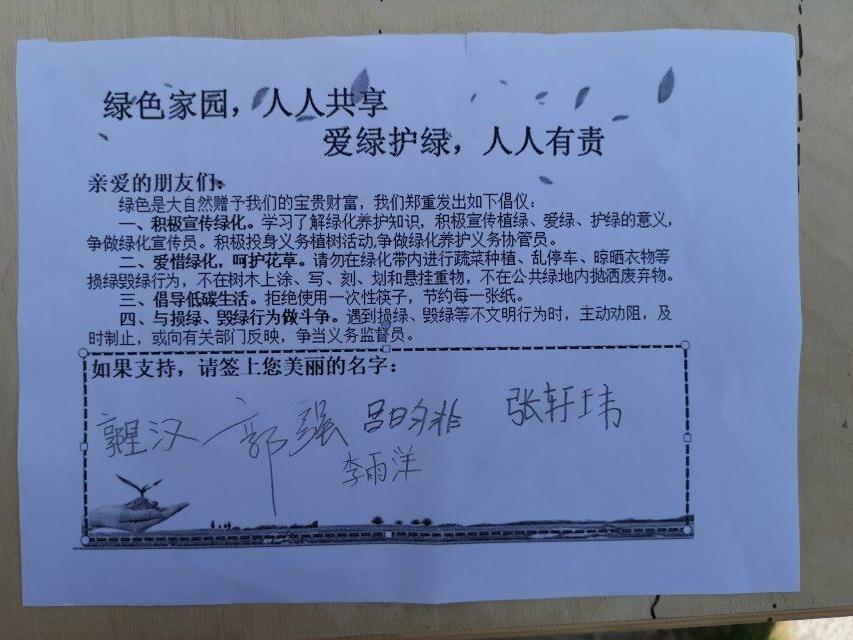 绿色家园，人人共享
爱绿护绿，人人有责
亲爱的朋友们：
绿色是大自然赠予我们的宝贵财富，我们郑重发出如下倡仪：
一、积极宣传绿化。学习了解绿化养护知识，积极宣传植绿、爱绿、护绿的意义，
争做绿化宣传员。积极投身义务植树活动,争做绿化养护义务协管员。
二、爱惜绿化，呵护花草。请勿在绿化带内进行蔬菜种植、乱停车、晾晒衣物等
损绿毁绿行为，不在树木上涂、写、刻、划和悬挂重物，不在公共绿地内抛洒废弃物。
三、倡导低碳生活。拒绝使用一次性筷子，节约每一张纸。
四、与损绿、毁绿行为做斗争。遇到损绿、毁绿等不文明行为时，主动劝阻，及
时制止，或向有关部门反映，争当义务监督员。
如果支持，请签上您美丽的名字：
郭强 张轩玮
李雨洋